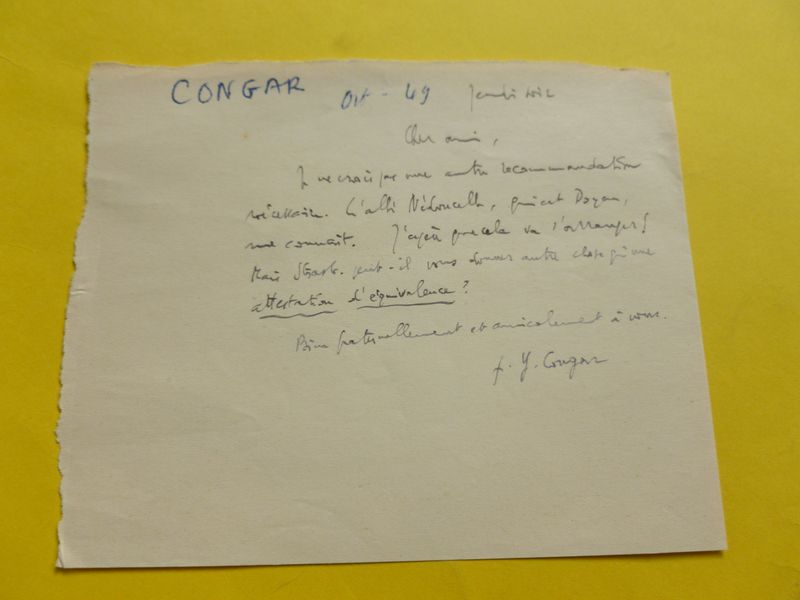 CONGAR Oct - 49 Jeudi soir
Cher ami,
Je ne crois pas une autre recommandation
nécessaire. L'abbé Nédoncelle, qui est Doyen,
me connaît. J'espère que cela va s'arranger!
Mais Strasb. peut-il vous donner autre chose qu'une
attestation d'équivalence?
Bien fraternellement et amicalement à vous.
f. Y. Congar